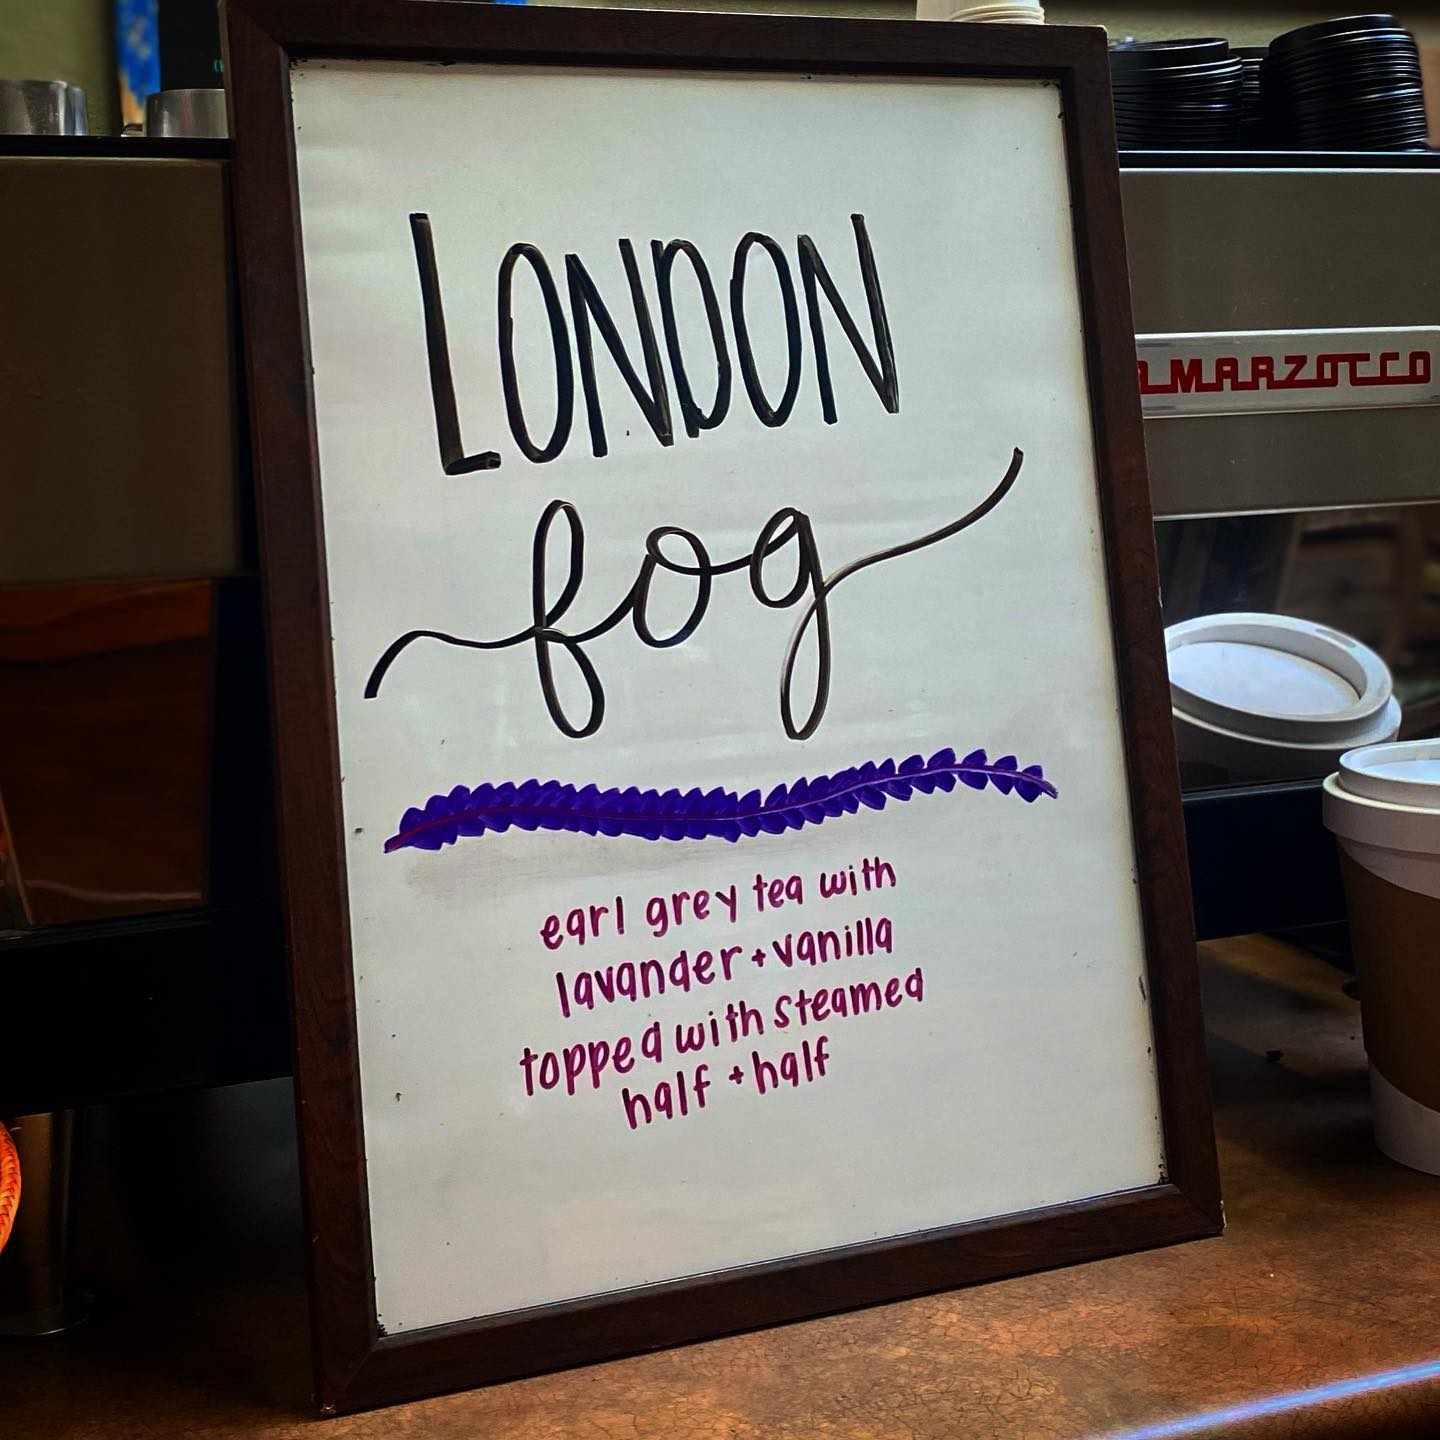 LONDON
fog
earl grey tea with
lavander + vanilla
topped with steamed
half + half
MARZOCCO